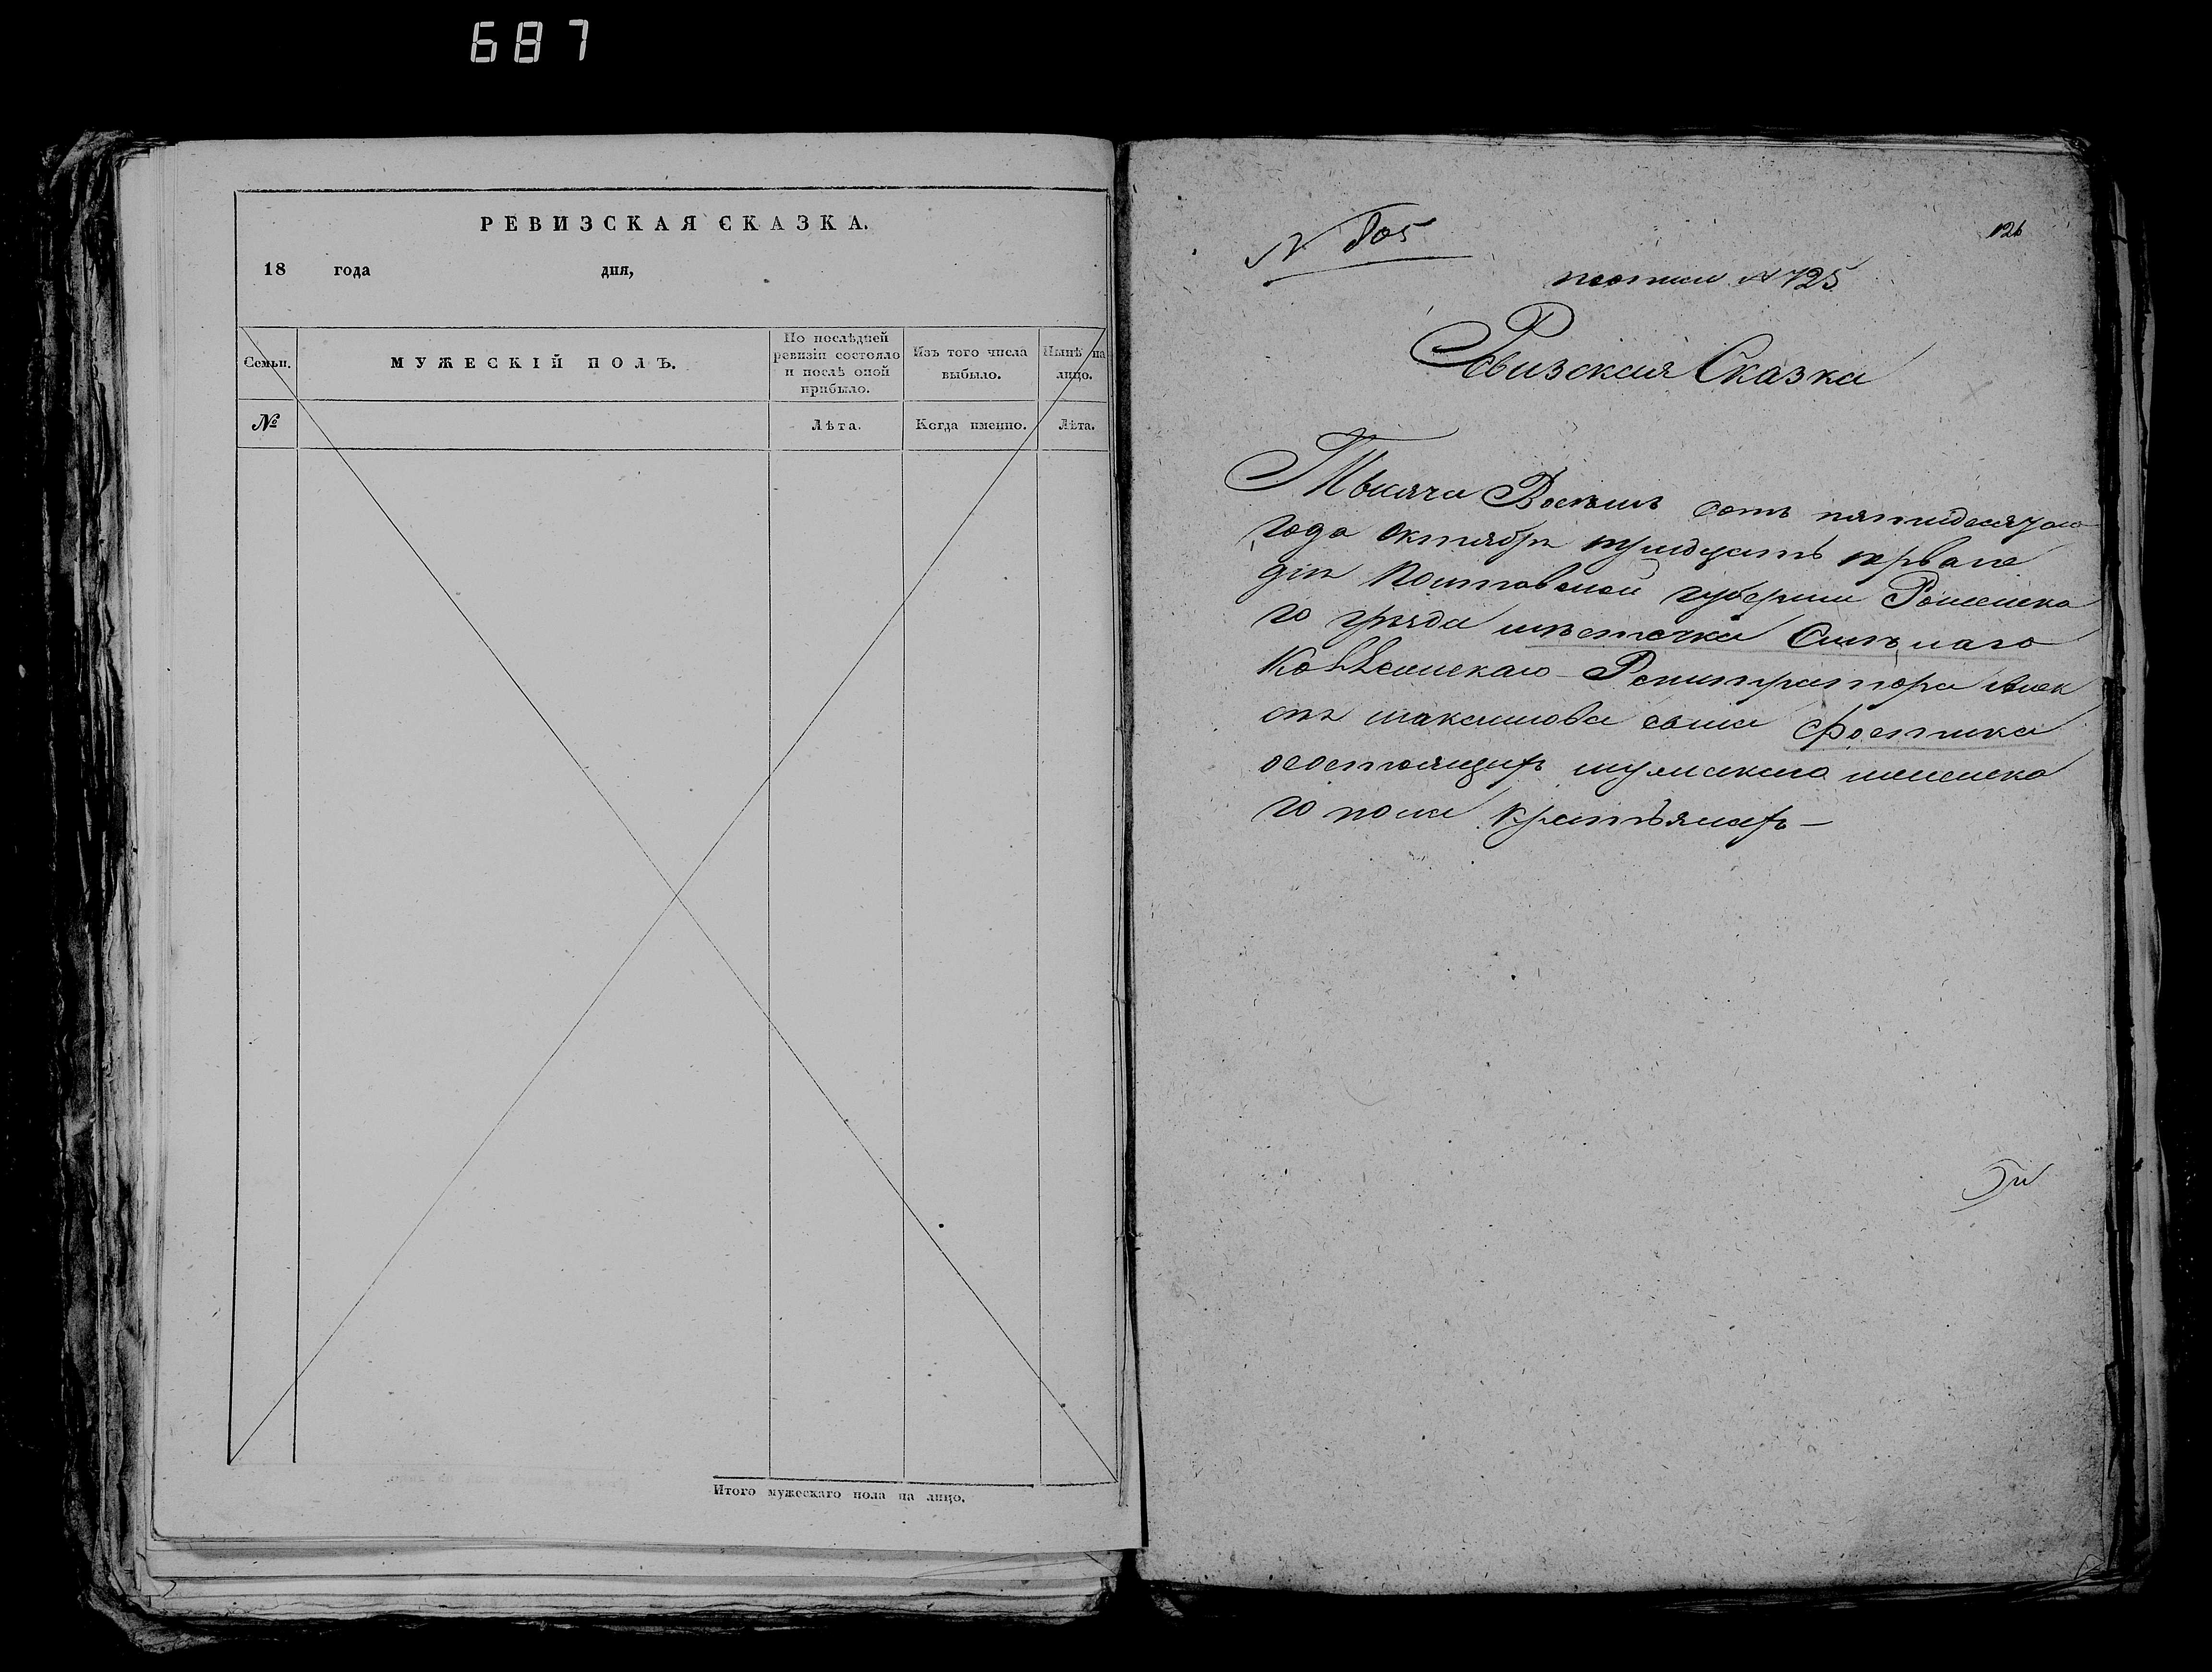 687
РЕВИЗСКАЯ СКАЗКА.
18 года дня,
Семьи.
МУЖЕСКІЙ ПОЛЪ.
По послѣдней
ревизіи состояло
и послѣ оной
прибыло.
Изъ того числа
выбыло.
Нынѣ на
лицо.
№
Лѣта.
Когда именно.
Лѣта.
Итого мужескаго пола на лицо.
N 805
126
N 725
Ревизская Сказка
Тысяча Восемь сотъ пятидесятого
года Октября тридцать перваго
дня Полтавской губерніи Роменска
го уѣзда мѣстечка Смѣлаго
Коллежскаго Регистратора Алек
сѣя Максимова сына
состоящихъ мужеска женска
го пола крестьянахъ —